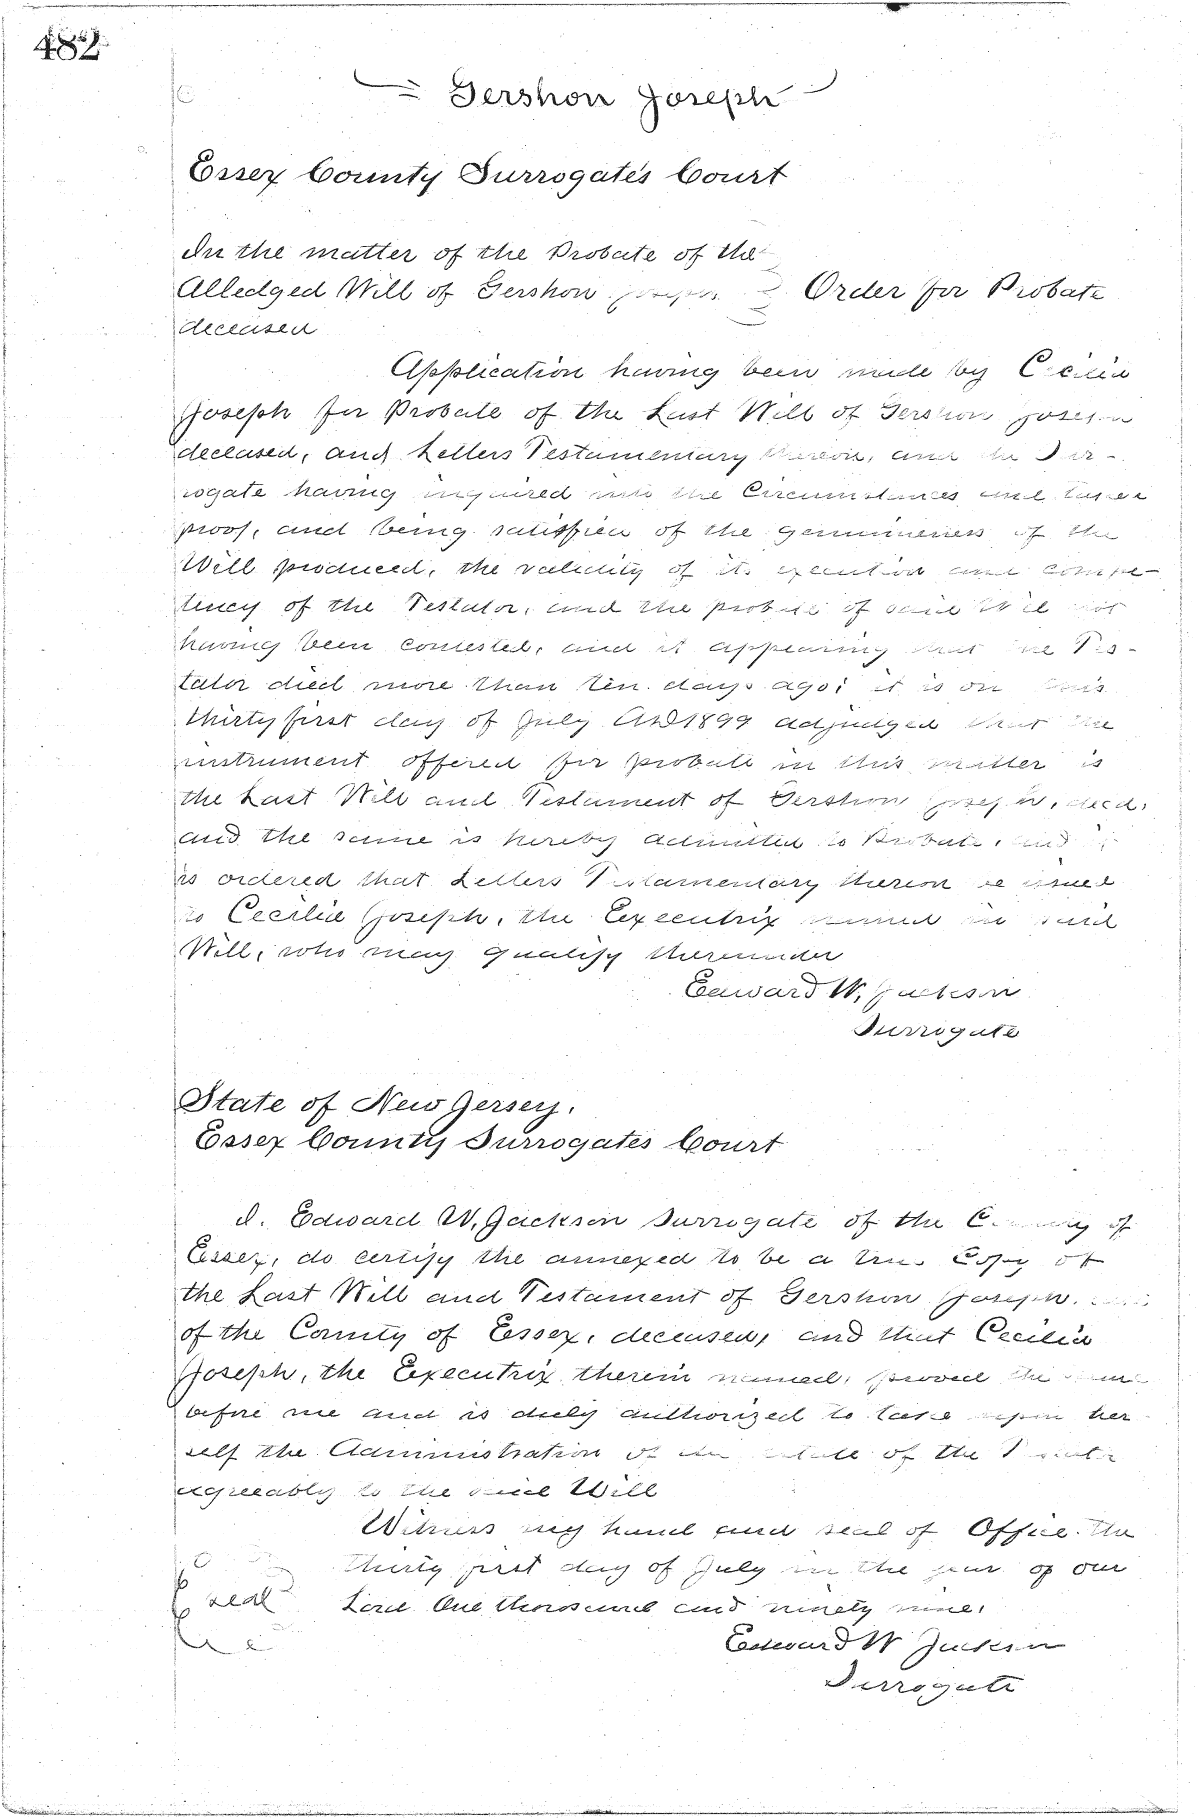 482
Gershon Joseph
Essex County Surrogate's Court
In the matter of the Probate of the
Alledged Will of Gershon Joseph Order for Probate
deceased
Application having been made by Cecilia
Joseph for Probate of the Last Will of Gershon Joseph
deceased, and Letters Testamentary thereon, and the Sur-
rogate having inquired into the Circumstances and taken
proof, and being satisfied of the genuineness of the
Will produced, the validity of its execution and compe-
tency of the Testator, and the probate of said Will not
having been contested, and it appearing that the Tes-
tator died more than ten days ago; it is on this
thirty first day of July AD 1899 adjudged that the
instrument offered for probate in this matter is
the Last Will and Testament of Gershon Joseph, decd,
and the same is hereby admitted to Probate, and
is ordered that Letters Testamentary thereon be issued
to Cecilia Joseph, the Executrix named in said
Will, who may qualify thereunder
Edward W. Jackson
Surrogate
State of New Jersey,
Essex County Surrogates Court
I, Edward W. Jackson Surrogate of the County of
Essex, do certify the annexed to be a true Copy of
the Last Will and Testament of Gershon Joseph,
of the County of Essex, deceased, and that Cecilia
Joseph, the Executrix therein named, proved the same
before me and is duly authorized to take upon her
self the Administration of the estate of the Testator
agreeably to the said Will
Witness my hand and seal of Office the
thirty first day of July in the year of our
Lord One thousand and ninety nine,
seal
Edward W Jackson
Surrogate